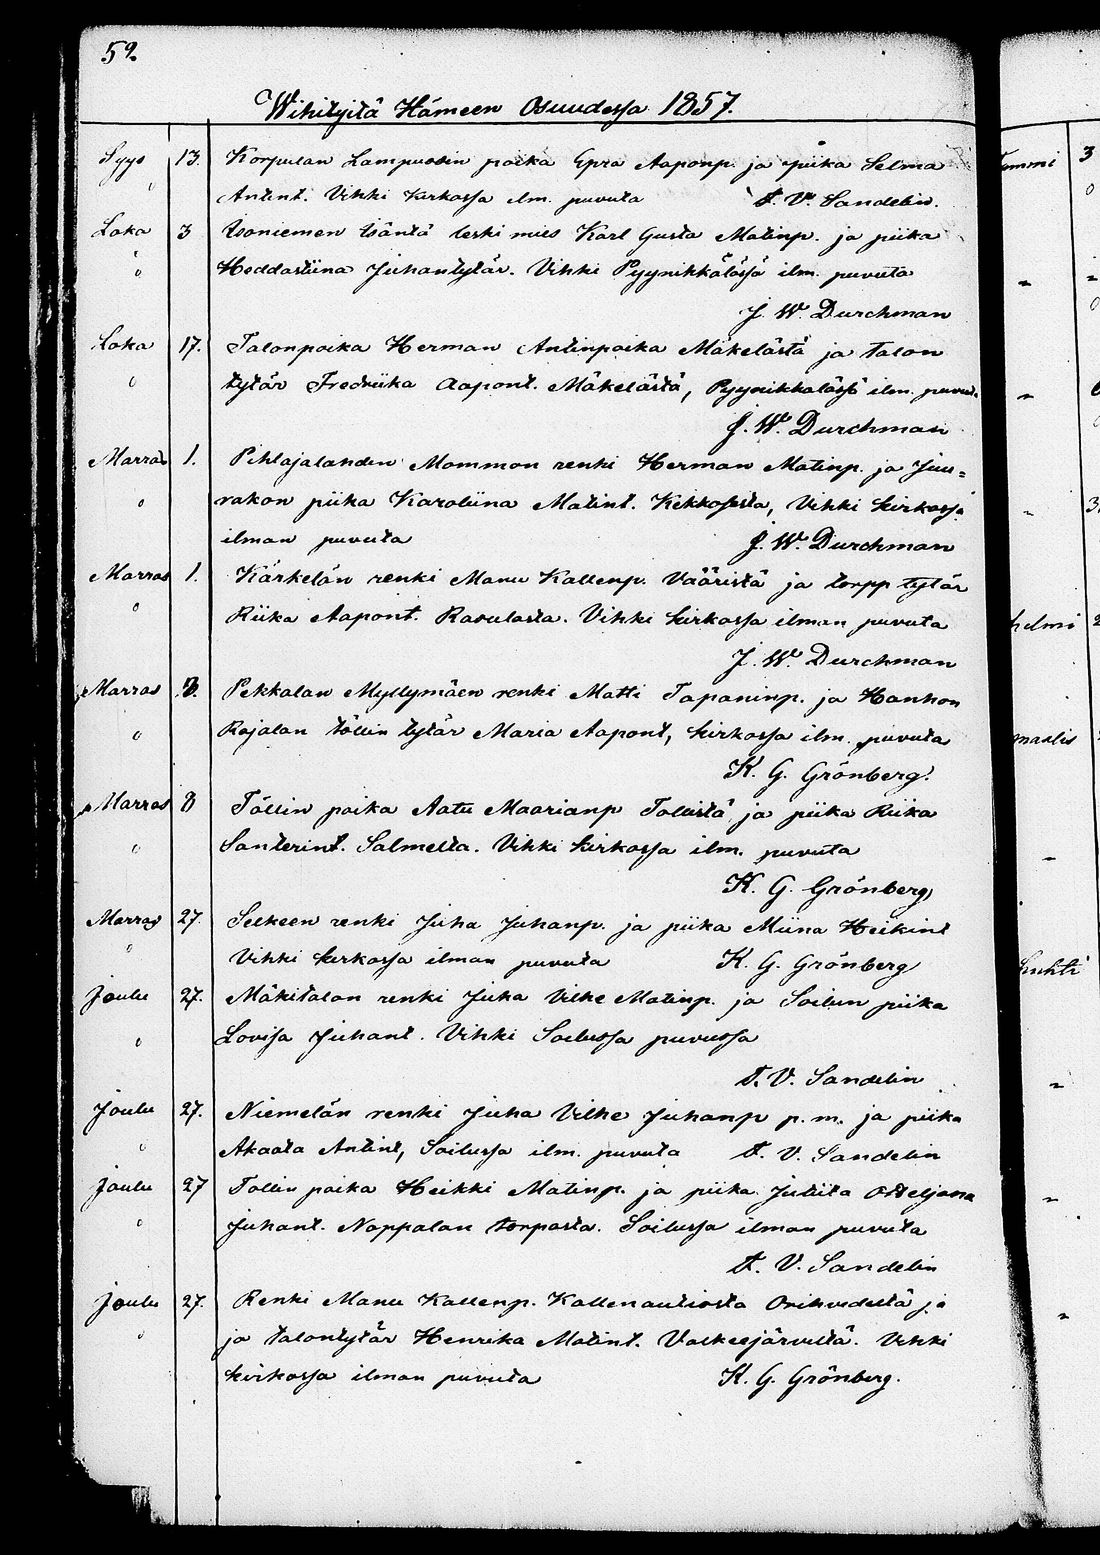 52.
Wihityitä Hämeen Osuudessa 1857.
Syys 13. Korpulan Lampuodin poika Epra Aaponp. ja piika Selma
Antint. Vihki kirkossa ilm. puvuta F. V. Sandelin.
Loka 3 Isoniemen Isäntä leski mies Karl Gusta Matinp. ja piika
Heddastiina Juhantytär. Vihki Pyynikkälässä ilm. puvuta
J. W. Durchman
Loka 17. Talonpoika Herman Antinpoika Mäkelästä ja talon
tytär Fredriika Aapont. Mäkelästä, Pyynikkälässä ilm. puvut.
J. W. Durchman
Marras 1. Pihlajalanden Mommon renki Herman Matinp. ja Juu-
rakon piika Karoliina Matint. Kekkosesta, Vihki kirkossa
ilman puvuta J. W. Durchman
Marras 1. Kärkelän renki Manu Kallenp. Vääristä ja torpp tytär
Riika Aapont. Rasulasta. Vihki kirkossa ilman puvuta
J. W. Durchman
Marras Pekkalan Myllymäen renki Matti Tapaninp. ja Hanhon
Rajalan töllin tytär Maria Aapont, kirkossa ilm. puvuta
K. G. Grönberg.
Marras 8 Töllin poika Aatu Maarianp Tolusta ja piika Riika
Santerint. Salmelta. Vihki kirkossa ilm. puvuta
K. G. Grönberg
Marras 27. Selkeen renki Juha Juhanp. ja piika Miina Heikint
Vihki kirkossa ilman puvuta K. G. Grönberg
Joulu 27. Mäkitalon renki Juha Vilhe Matinp. ja Soilun piika
Lovisa Juhant. Vihki Soilussa puvussa
F. V. Sandelin
Joulu 27. Niemelän renki Juha Vilhe Juhanp p. m. ja piika
Akaata Antint, Soilussa ilm. puvuta F. V. Sandelin
Joulu 27 Tollin poika Heikki Matinp. ja piika Juliita Otteljana
Juhant. Nappalan torpasta. Soilussa ilman puvuta
F. V. Sandelin
Joulu 27. Renki Manu Kallenp. Kallenautiosta Orihvedeltä ja
ja talontytär Henrika Matint. Valkeejärveltä. Vihki
kirkossa ilman puvuta K. G. Grönberg.
3
helmi
maalis
huhti